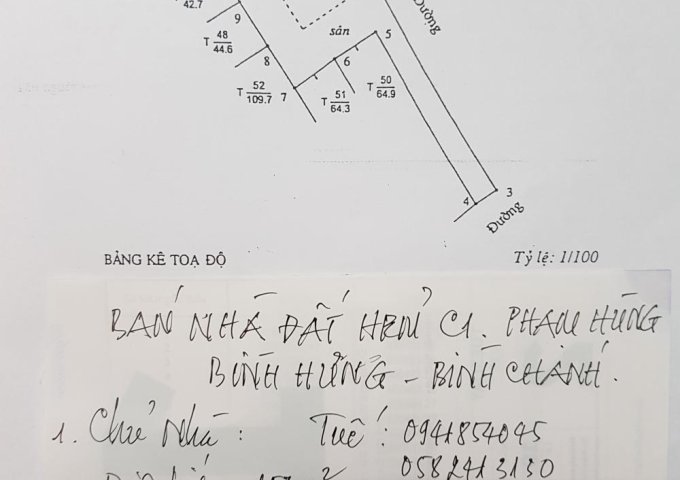 42.7
9
sân
5
Đường
T 48
44.6
8
6
T 52
109.7
7
T 51
64.3
T 50
64.9
4
3
Đường
BẢNG KÊ TOẠ ĐỘ
Tỷ lệ: 1/100
BÁN NHÀ ĐẤT HẺM C1. PHẠM HÙNG
BÌNH HƯNG - BÌNH CHÁNH.
1. Chủ nhà : Tuế : 0941854045
0582413130